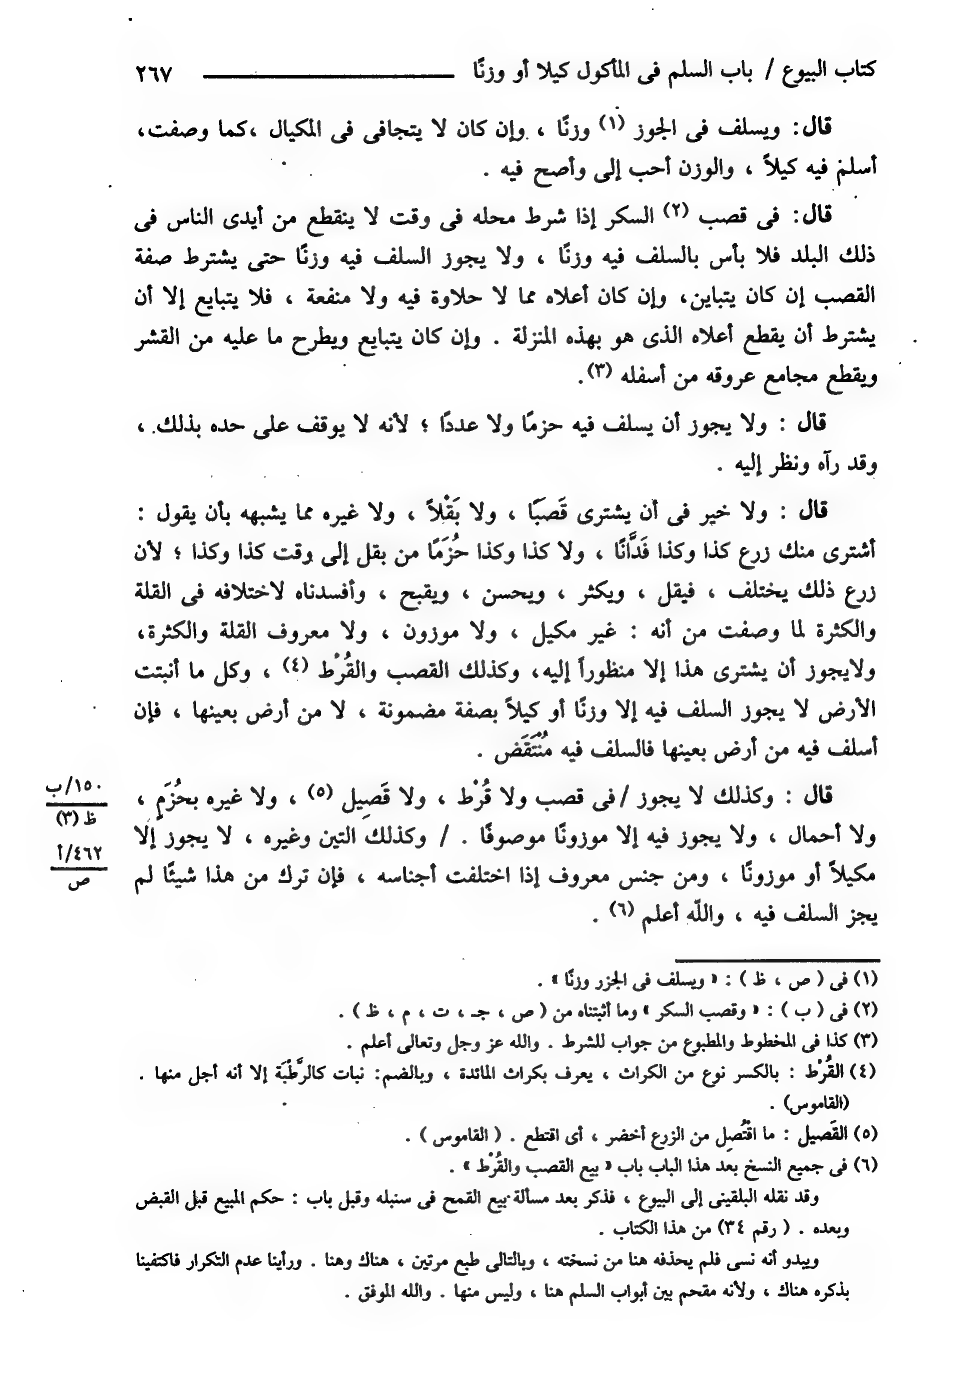 كتاب البيوع / باب السلم فى المأكول كيلا أو وزنًا ٢٦٧
قال: ويسلف فى الجوز (١) وزنًا ، وإن كان لا يتجافى فى المكيال ،كما وصفت،
أسلم فيه كيلاً ، والوزن أحب إلى وأصح فيه .
قال: فى قصب (٢) السكر إذا شرط محله فى وقت لا ينقطع من أيدى الناس فى
ذلك البلد فلا بأس بالسلف فيه وزنًا ، ولا يجوز السلف فيه وزنًا حتى يشترط صفة
القصب إن كان يتباين، وإن كان أعلاه مما لا حلاوة فيه ولا منفعة ، فلا يتبايع إلا أن
يشترط أن يقطع أعلاه الذى هو بهذه المنزلة . وإن كان يتبايع ويطرح ما عليه من القشر
ويقطع مجامع عروقه من أسفله (٣).
قال : ولا يجوز أن يسلف فيه حزمًا ولا عددًا ؛ لأنه لا يوقف على حده بذلك ،
وقد رآه ونظر إليه .
قال : ولا خير فى أن يشترى قَصَبًا ، ولا بَقْلاً ، ولا غيره مما يشبهه بأن يقول :
أشترى منك زرع كذا وكذا فَدَّانًا ، ولا كذا وكذا حُزَمًا من بقل إلى وقت كذا وكذا ؛ لأن
زرع ذلك يختلف ، فيقل ، ويكثر ، ويحسن ، ويقبح ، وأفسدناه لاختلافه فى القلة
والكثرة لما وصفت من أنه : غير مكيل ، ولا موزون ، ولا معروف القلة والكثرة،
ولايجوز أن يشترى هذا إلا منظوراً إليه، وكذلك القصب والقُرْط (٤) ، وكل ما أنبتت
الأرض لا يجوز السلف فيه إلا وزنًا أو كيلاً بصفة مضمونة ، لا من أرض بعينها ، فإن
أسلف فيه من أرض بعينها فالسلف فيه مُنْتَقَض .
قال : وكذلك لا يجوز / فى قصب ولا قُرْط ، ولا قَصِيل (٥) ، ولا غيره بحُزَمٍ ،
ولا أحمال ، ولا يجوز فيه إلا موزونًا موصوفًا . / وكذلك التين وغيره ، لا يجوز إلا
مكيلاً أو موزونًا ، ومن جنس معروف إذا اختلفت أجناسه ، فإن ترك من هذا شيئًا لم
يجز السلف فيه ، واللّه أعلم (٦) .
١٥٠/ب
ظ (٣)
٤٦٢/أ
ص
(١) فى ( ص ، ظ ) : « ويسلف فى الجزر وزنًا » .
(٢) فى ( ب ) : « وقصب السكر » وما أثبتناه من ( ص ، جـ ، ت ، م ، ظ ) .
(٣) كذا فى المخطوط والمطبوع من جواب للشرط . والله عز وجل وتعالى أعلم .
(٤) القُرْط : بالكسر نوع من الكراث ، يعرف بكراث المائدة ، وبالضم: نبات كالرَّطْبَة إلا أنه أجل منها .
(القاموس) .
(٥) القَصيل : ما اقْتُصِل من الزرع أخضر ، أى اقتطع . ( القاموس ) .
(٦) فى جميع النسخ بعد هذا الباب باب « بيع القصب والقُرْط » .
وقد نقله البلقينى إلى البيوع ، فذكر بعد مسألة بيع القمح فى سنبله وقبل باب : حكم المبيع قبل القبض
وبعده . ( رقم ٣٤) من هذا الكتاب .
ويبدو أنه نسى فلم يحذفه هنا من نسخته ، وبالتالى طبع مرتين ، هناك وهنا . ورأينا عدم التكرار فاكتفينا
بذكره هناك ، ولأنه مقحم بين أبواب السلم هنا ، وليس منها . والله الموفق .